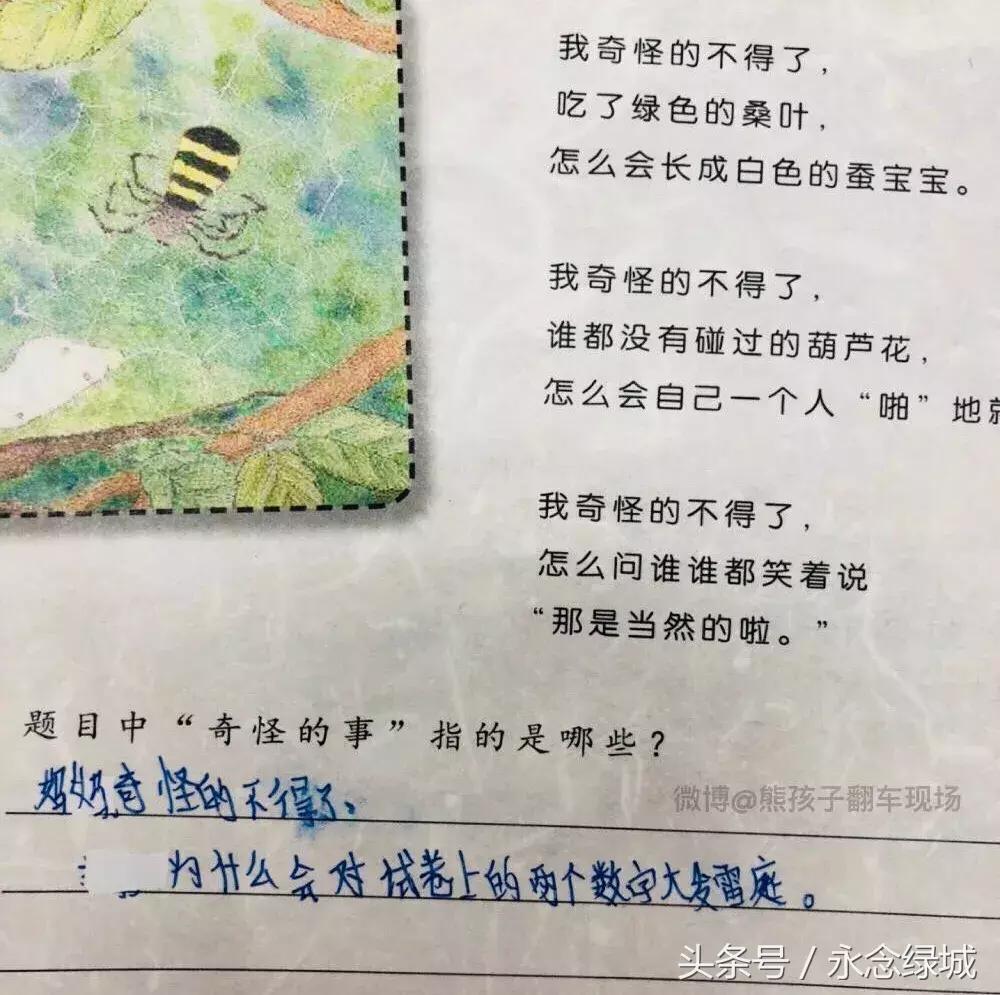 我奇怪的不得了，
吃了绿色的桑叶，
怎么会长成白色的蚕宝宝。
我奇怪的不得了，
谁都没有碰过的葫芦花，
怎么会自己一个人“啪”地
我奇怪的不得了，
怎么问谁谁都笑着说
“那是当然的啦。”
题目中“奇怪的事”指的是哪些？
妈妈奇怪的不得了、
微博@熊孩子翻车现场
为什么会对试卷上的两个数字大发雷庭。
头条号 / 永念绿城